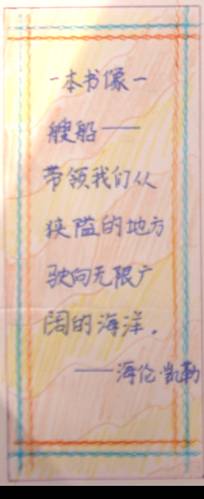 一本书像一
艘船——
带领我们从
狭隘的地方
驶向无限广
阔的海洋。
——海伦·凯勒